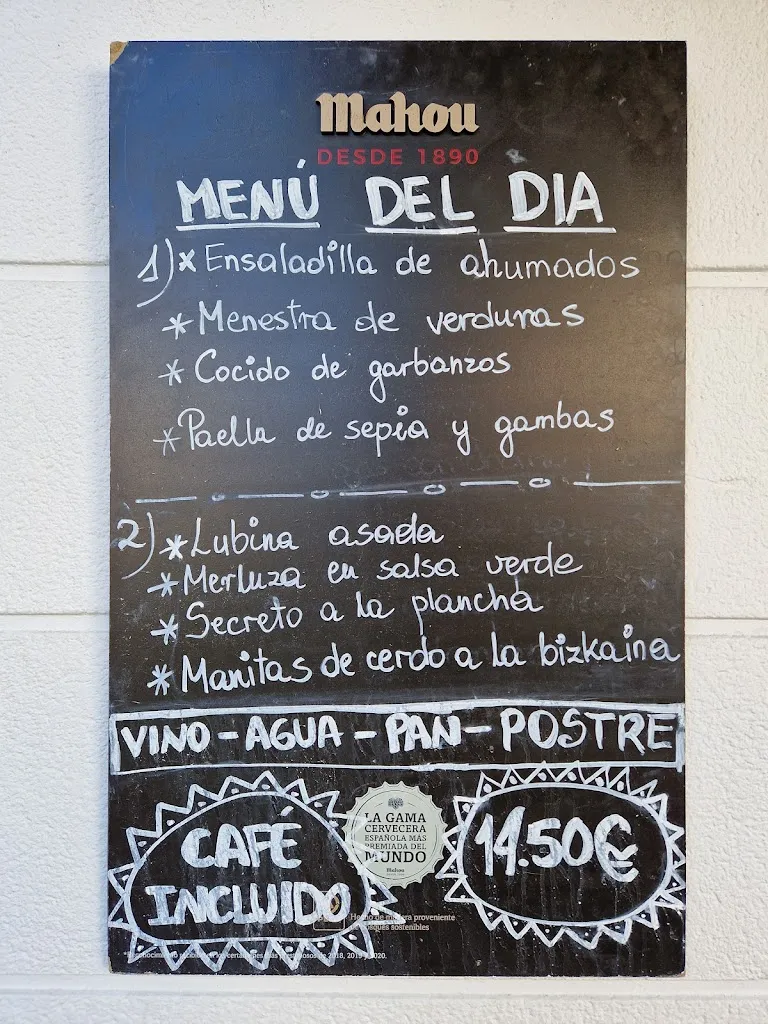 Mahou
DESDE 1890
MENÚ DEL DIA
1) * Ensaladilla de ahumados
* Menestra de verduras
* Cocido de garbanzos
* Paella de sepia y gambas
2) * Lubina asada
* Merluza en salsa verde
* Secreto a la plancha
* Manitas de cerdo a la bizkaina
VINO - AGUA - PAN - POSTRE
CAFÉ
INCLUIDO
LA GAMA
CERVECERA
ESPAÑOLA MÁS
PREMIADA DEL
MUNDO
Mahou
14.50€
Hecho de madera proveniente
de bosques sostenibles
2018, 2019 y 2020.